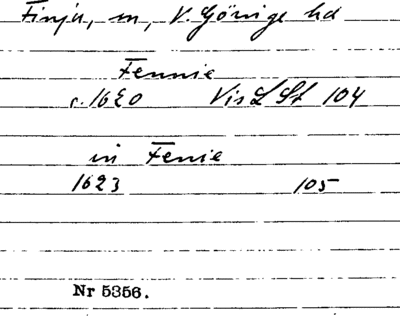 Finja, sn, V. Göinge hd
Fennie
c. 1620 VisLSt 104
in Fenie
1623 105
Nr 5356.